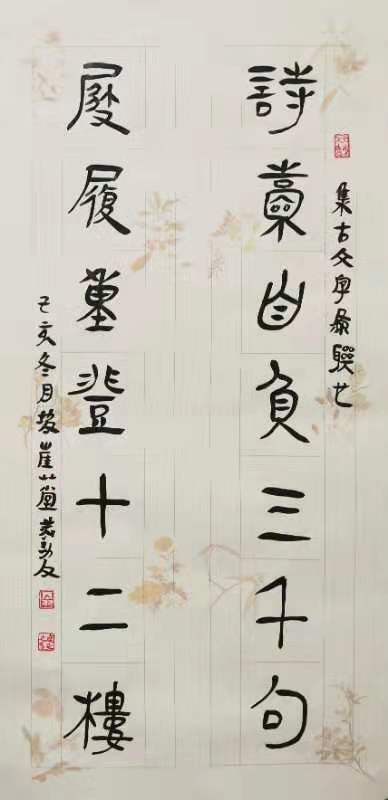 集古文字為聯也
詩橐自負三千句
屐履重登十二樓
己亥冬月崖